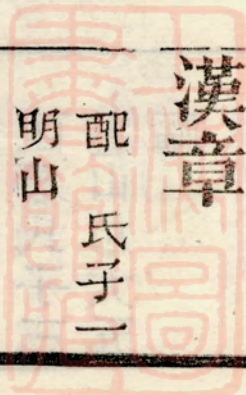 漢章
配　氏子一
明山